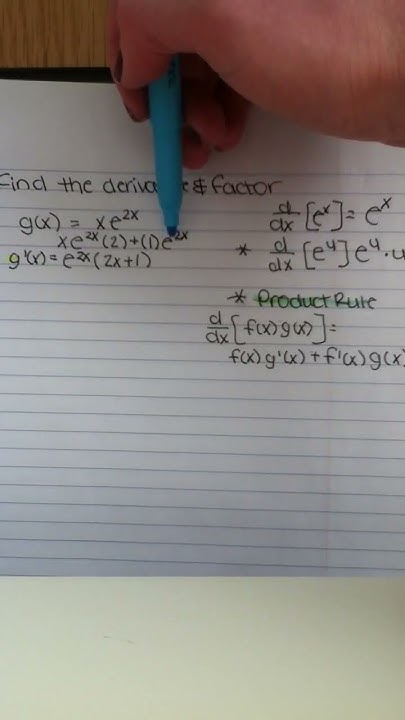 Find the deriva & factor
g(x) = xe^2x
xe^2x(2)+(1)e^2x
g'(x)=e^2x(2x+1)
d/dx [e^x] = e^x
* d/dx [e^u] e^u · u
* Product Rule
d/dx [f(x)g(x)] =
f(x)g'(x)+f'(x)g(x)